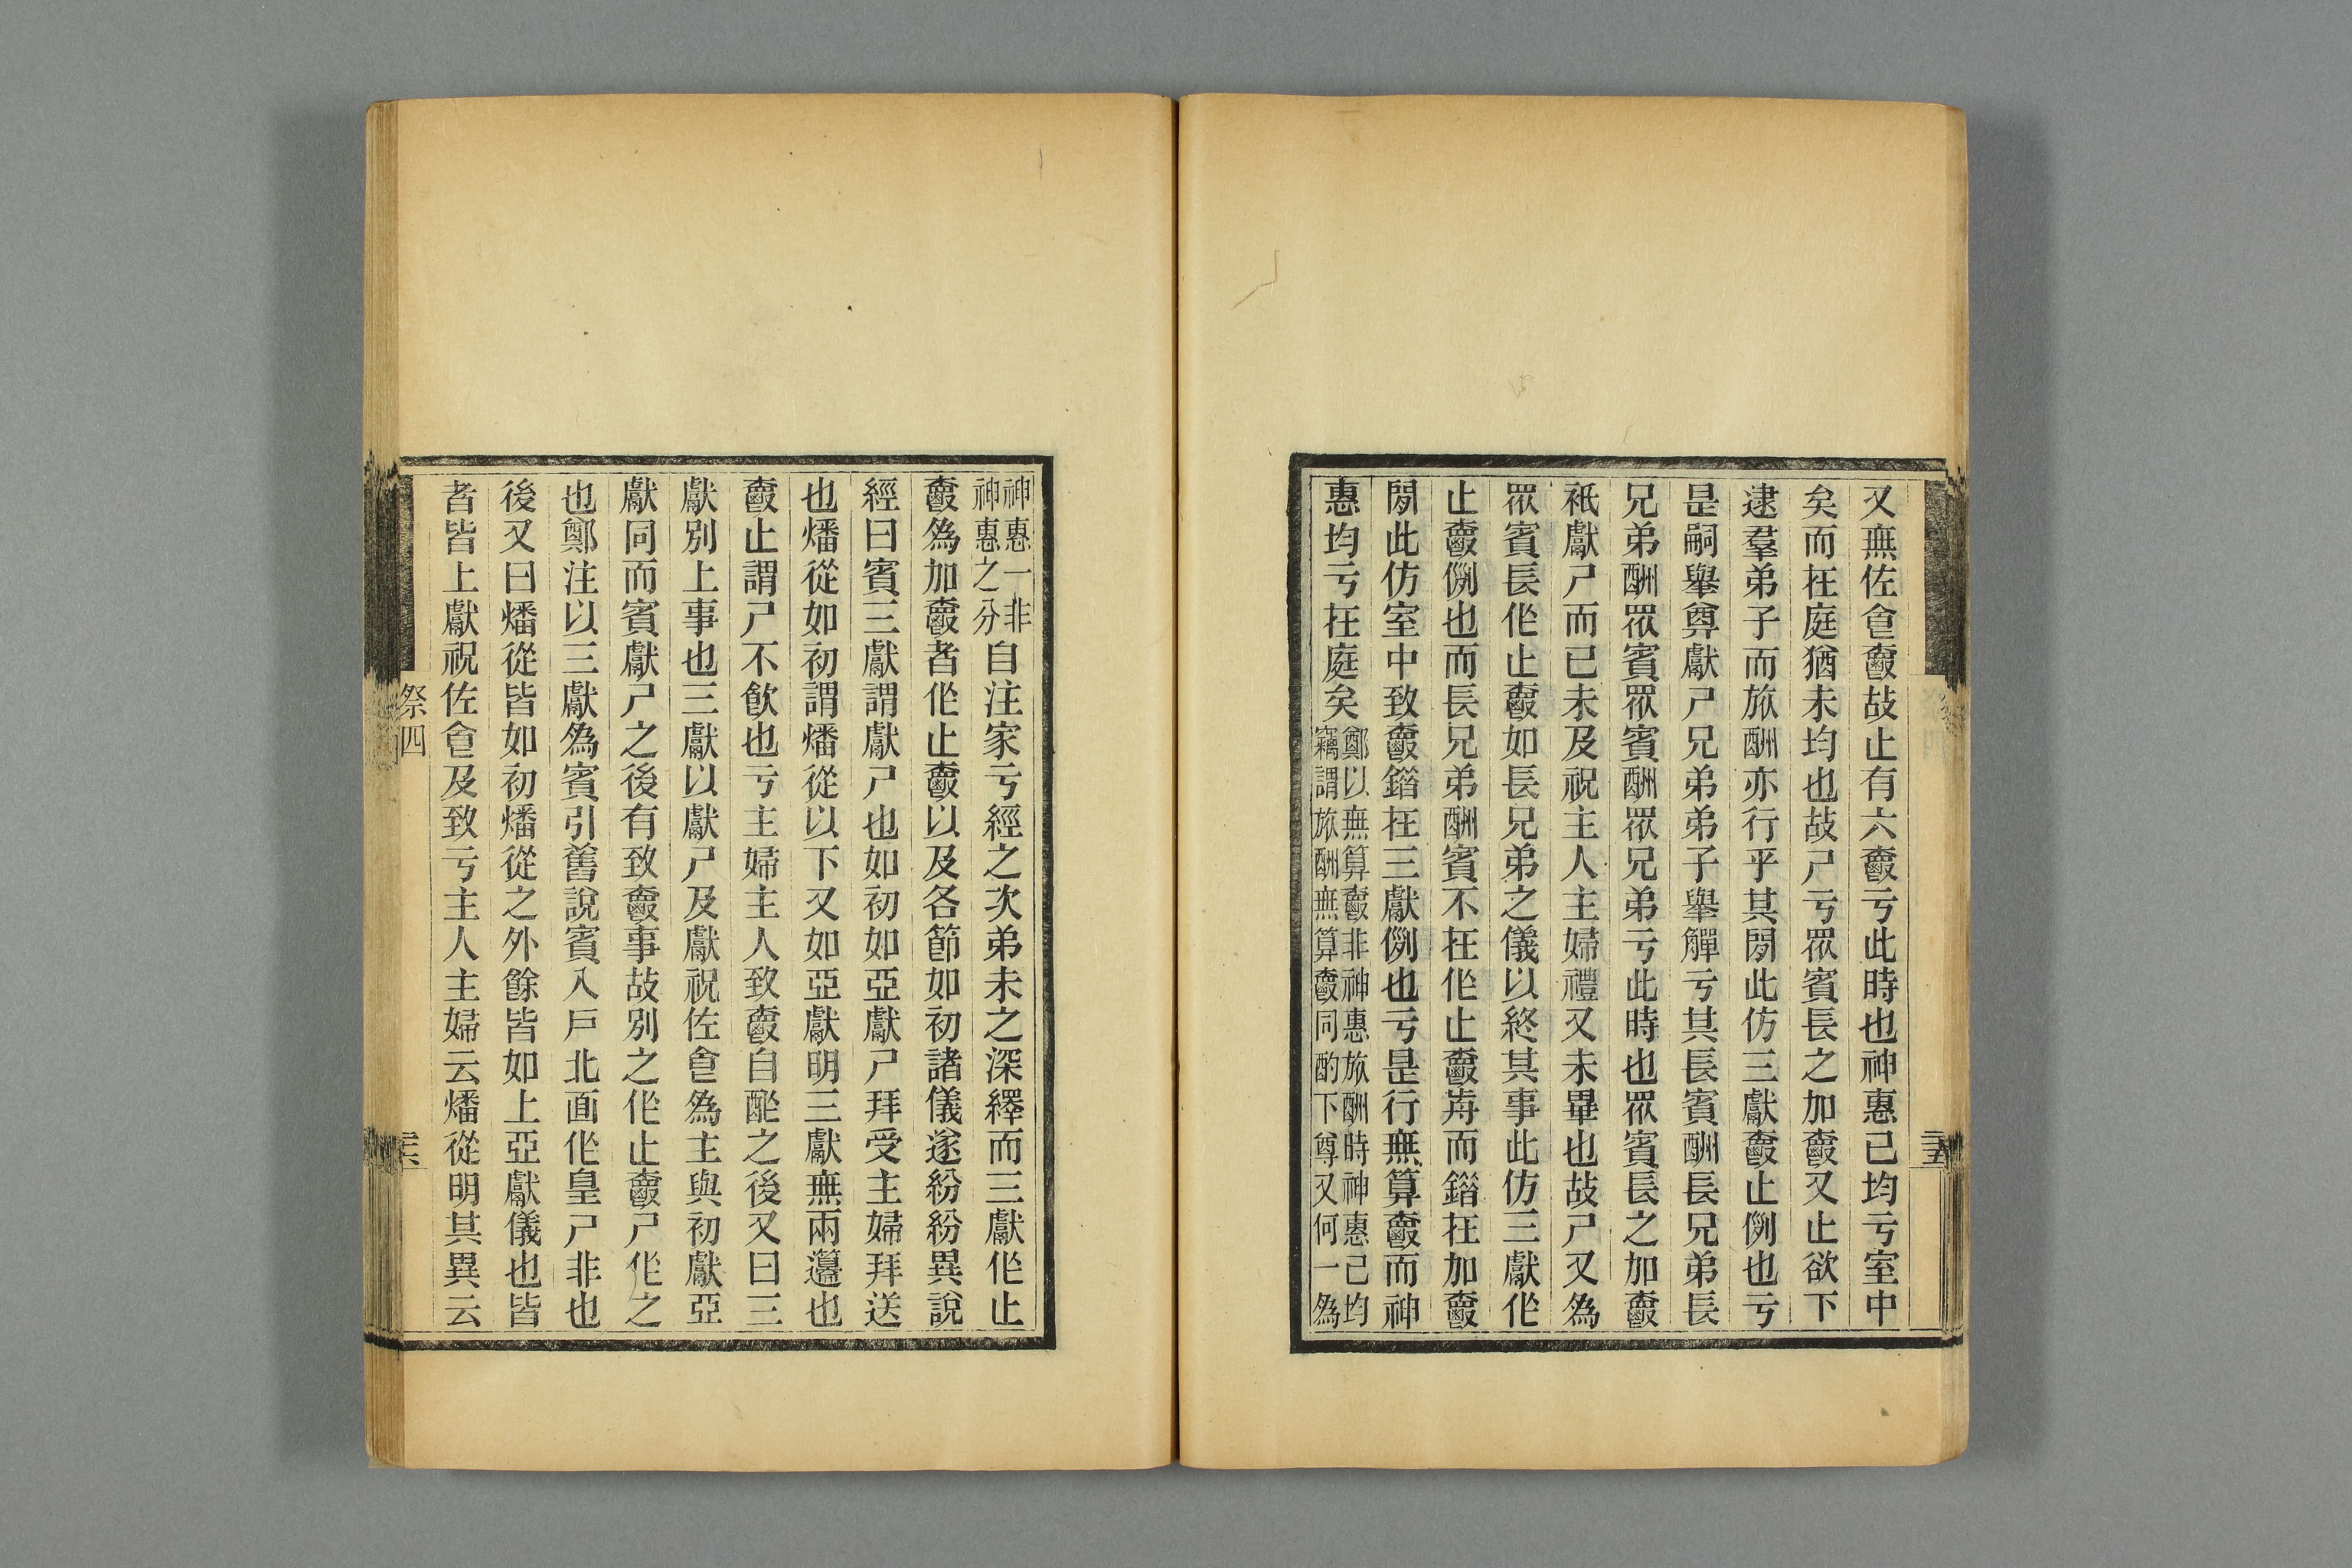 又無佐食爵故止有六爵亏此時也神惠已均亏室中
矣而在庭猶未均也故尸亏眾賓長之加爵又止欲下
逮羣弟子而旅酬亦行乎其閒此仿三獻爵止例也亏
是嗣舉尊獻尸兄弟弟子舉觶亏其長賓酬長兄弟長
兄弟酬眾賓眾賓酬眾兄弟亏此時也眾賓長之加爵
祇獻尸而已未及祝主人主婦禮又未畢也故尸又為
眾賓長作止爵如長兄弟之儀以終其事此仿三獻作
止爵例也而長兄弟酬賓不在作止爵歬而錯在加爵
閒此仿室中致爵錯在三獻例也亏是行無算爵而神
惠均亏在庭矣
鄭以無算爵非神惠旅酬時神惠已均
竊謂旅酬無算爵同酌下尊又何一為
三十五
神惠一非
神惠之分
自注家亏經之次弟未之深繹而三獻作止
爵為加爵者作止爵以及各節如初諸儀遂紛紛異說
經曰賓三獻謂獻尸也如初如亞獻尸拜受主婦拜送
也燔從如初謂燔從以下又如亞獻明三獻無兩籩也
爵止謂尸不飲也亏主婦主人致爵自酢之後又曰三
獻別上事也三獻以獻尸及獻祝佐食為主與初獻亞
獻同而賓獻尸之後有致爵事故別之作止爵尸作之
也鄭注以三獻為賓引舊說賓入戶北面作皇尸非也
後又曰燔從皆如初燔從之外餘皆如上亞獻儀也皆
者皆上獻祝佐食及致亏主人主婦云燔從明其異云
祭四
三十六